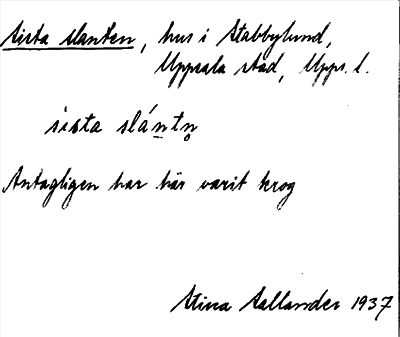 Sista slanten, hus i Stabbylund,
Uppsala stad, Upps. l.
sista slántn̥
Antagligen har här varit krog
Stina Sallander 1937